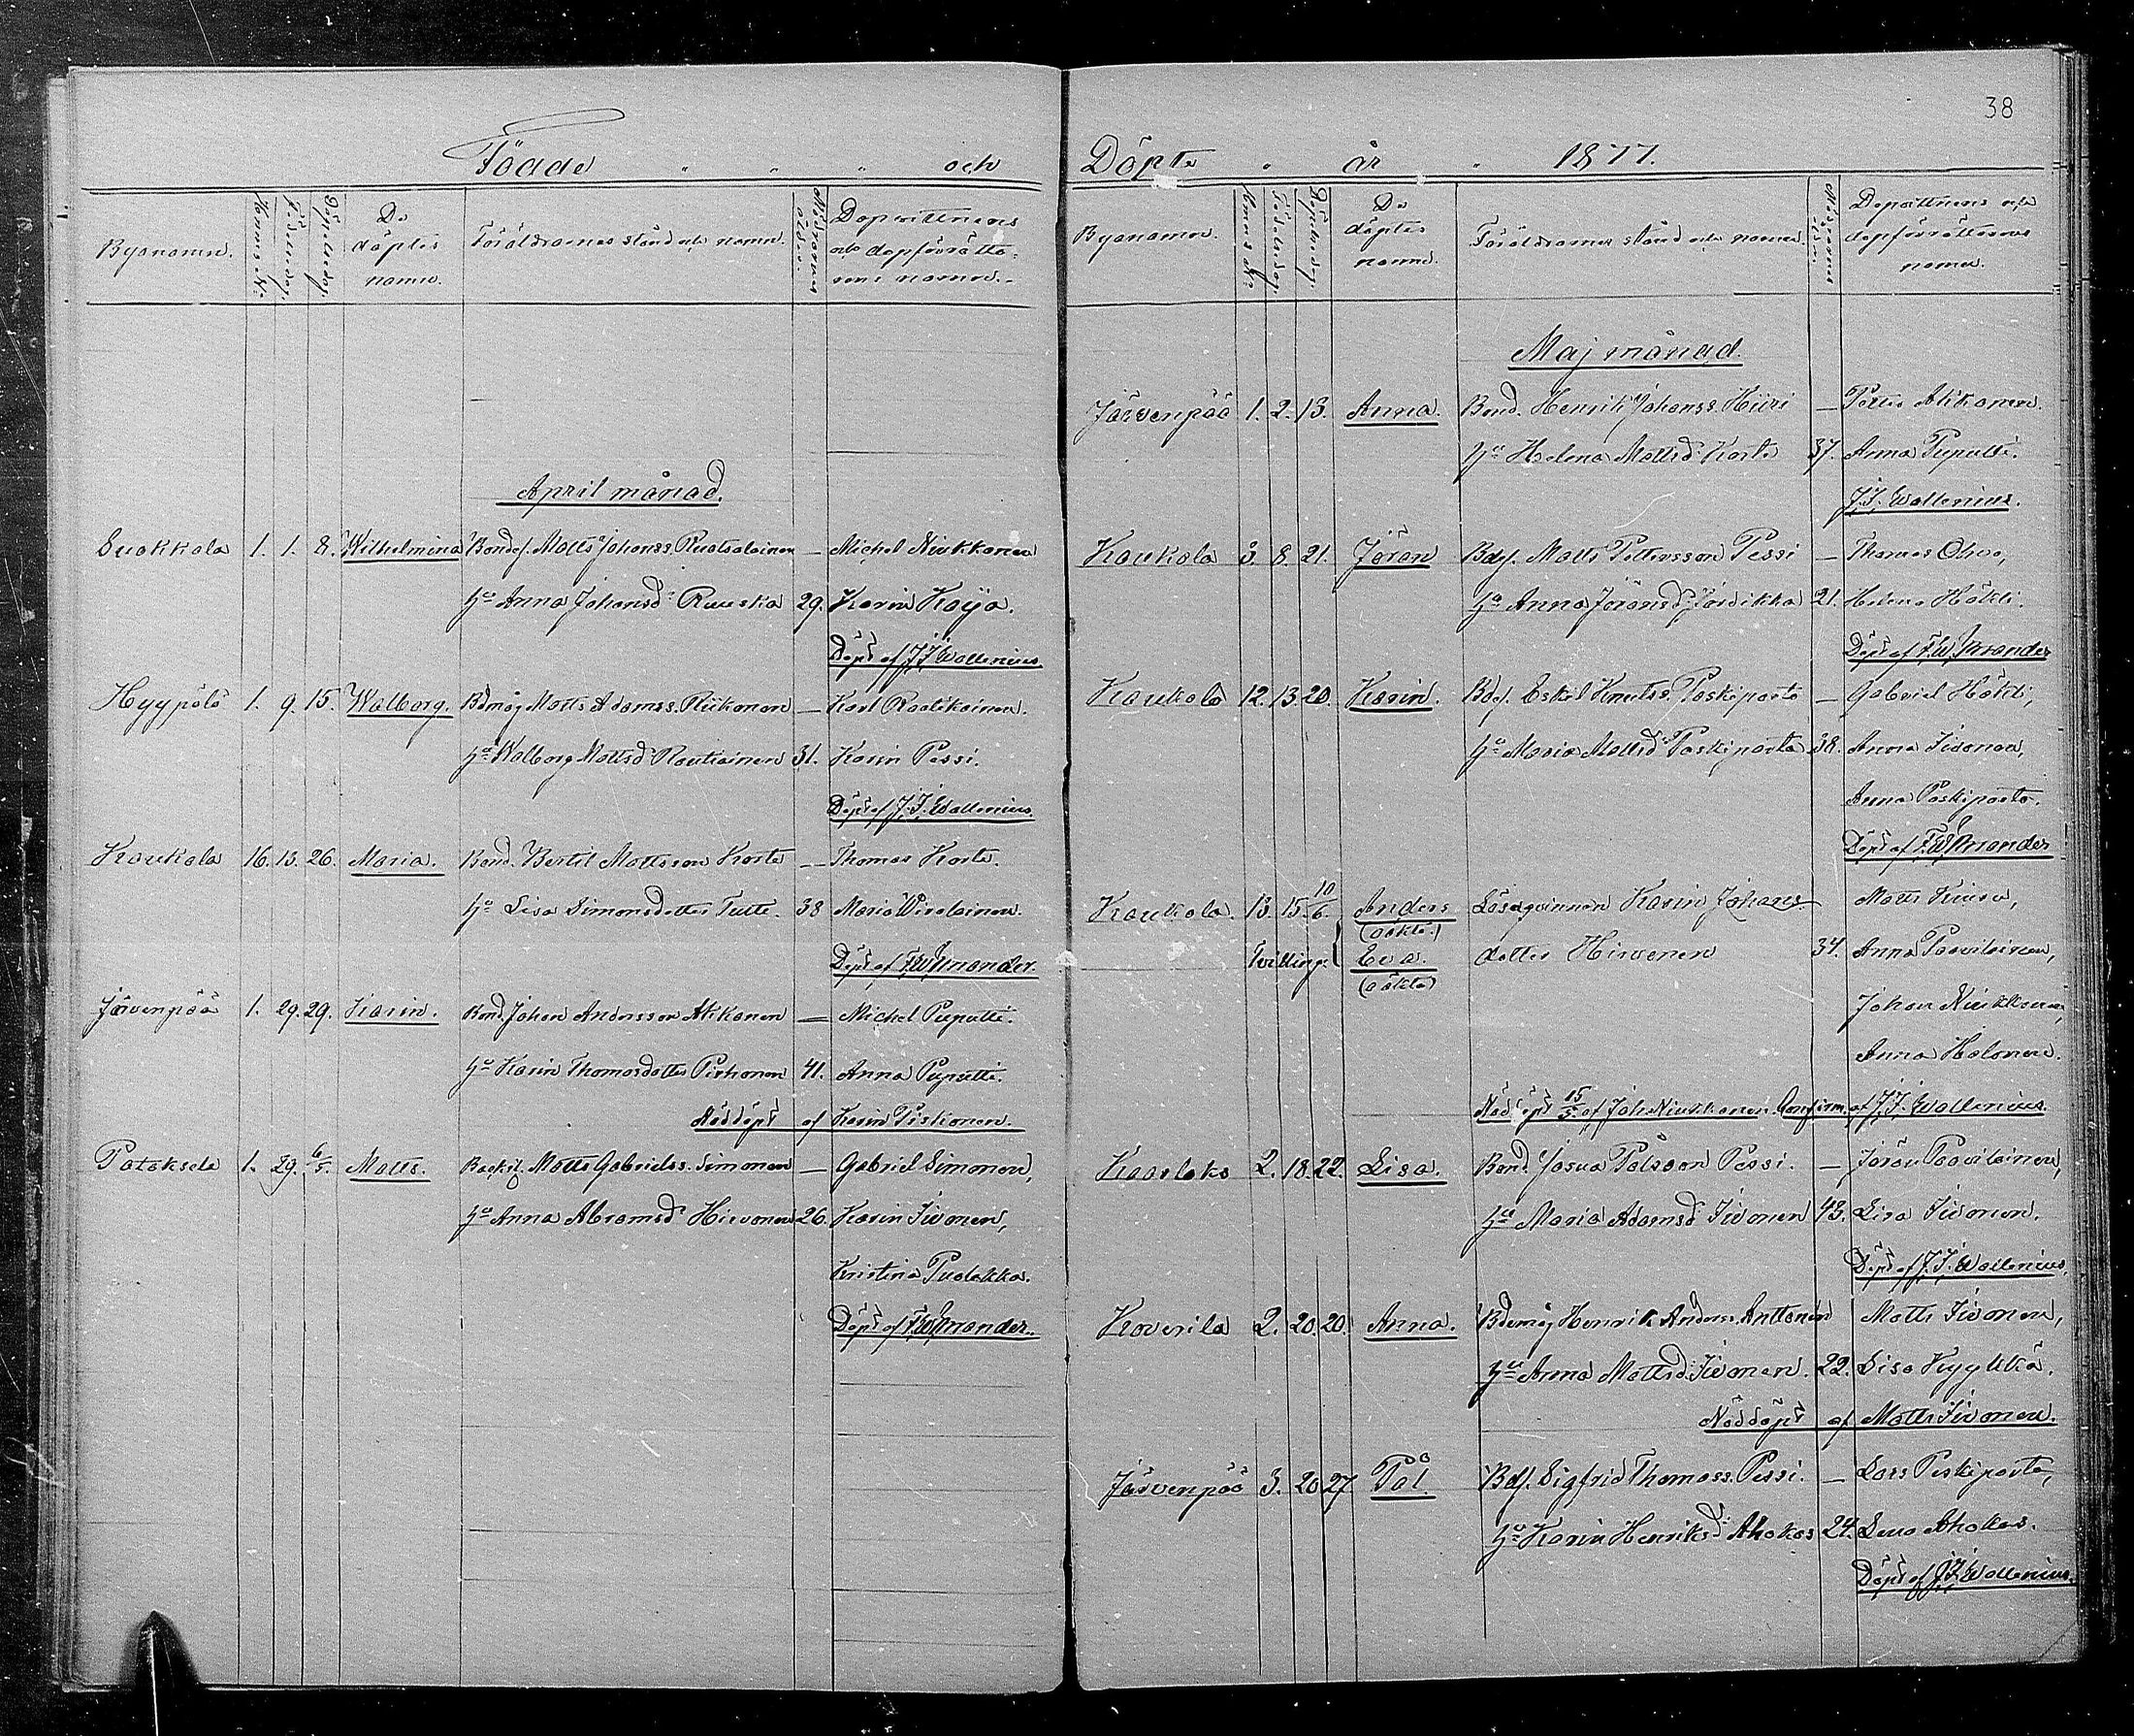 38
Födde " " " och
Byanamn. Hemmets №. Födelsedag. Döpelsedag. De döptes namn. Föräldrarnes stånd och namn. Mödrarnas ålder. Dopvittnens och dopförrättarens namn.
April månad.
Suokkala 1. 1. 8. Wilhelmina Bondes. Matts Johanss. Ruotsalainen — Michel Niukkanen
Hu Anna Johansdr Ruuska 29. Karin Kaija.
Döpt af J. F. Wallenius
Hyypölä 1. 9. 15. Walborg. Bdmåg Matts Adamss. Riikonen — Karl Raatikainen.
Hu Walborg Mattsdr Rautiainen 31. Karin Pessi.
Döpt af J. F. Wallenius.
Kaukola 16. 13. 26. Maria. Bond. Bertil Mattsson Korte — Thomas Korte.
Hu Lisa Simonsdotter Tutte. 38 Maria Wirolainen.
Döpt af F. W. Brander.
Järvenpää 1. 29. 29. Karin. Bond. Johan Andersson Akkanen — Michel Puputti.
Hu Karin Thomasdotter Pirhonen 41. Anna Puputti.
Nöddöpt af Karin Pirhonen.
Pataksela 1. 29. 6/5. Matts. Backst. Matts Gabrielss. Simonen — Gabriel Simonen,
Hu Anna Abramsdr Hirvonen 26. Karin Iivonen,
Kristina Pudakka.
Döpt af F. W. Brander.
Döpte " år " 1877.
Byanamn. Hemmets №. Födelsedag. Döpelsedag. De döptes namn. Föräldrarnes stånd och namn. Mödrarnas ålder. Dopvittnens och dopförrättarens namn.
Maj månad.
Järvenpää 1. 2. 13. Anna. Bond. Henrik Johanss. Hiiri — Petter Akkanen.
Hu Helena Mattsdr Korte 37. Anna Puputti.
J. F. Wallenius.
Kaukola 3. 8. 21. Jöran Bdes. Matts Pettersson Pessi — Thomas Ohvo,
Hu Anna Jöransdr Jördikka 21. Helena Häkli.
Döpt af F. W. Brander
Kaukola 12. 13. 20. Karin. Bdes. Eskel Knutss. Paskiparta — Gabriel Häkli,
Hu Maria Mattsdr Paskiparta 38. Anna Iivonen,
Anna Paskiparta.
Döpt af F. W. Brander
Kaukola. 13. 15. 10/6. Anders (oäkta.) Lösqvinnan Karin Johans- Matts Kiuru,
Tvilling. Eva. (oäkta) dotter Hirvonen 34. Anna Paavilainen,
Johan Niukkanen,
Anna Halonen.
Nöddöpt 15/5 af Joh. Niukkanen. Confirm. af J. F. Wallenius.
Kaarlaks 2. 18. 22. Lisa. Bond. Josua Pålsson Pessi. — Jöran Paavilainen,
Hu Maria Adamsdr Iivonen 43. Lisa Iivonen.
Döpt af J. F. Wallenius.
Koverila 2. 20. 20. Anna. Bdemåg Henrik Anderss. Anttonen Matts Iivonen,
Hu Anna Mattsdr Iivonen. 22. Lisa Kyykkä.
Nöddöpt af Matts Iivonen.
Järvenpää 3. 20 27 Pål. Bdes. Sigfrid Thomass. Pessi. — Lars Paskiparta,
Hu Karin Henriksdr Ahokas 24. Lena Ahokas.
Döpt af J. F. Wallenius.